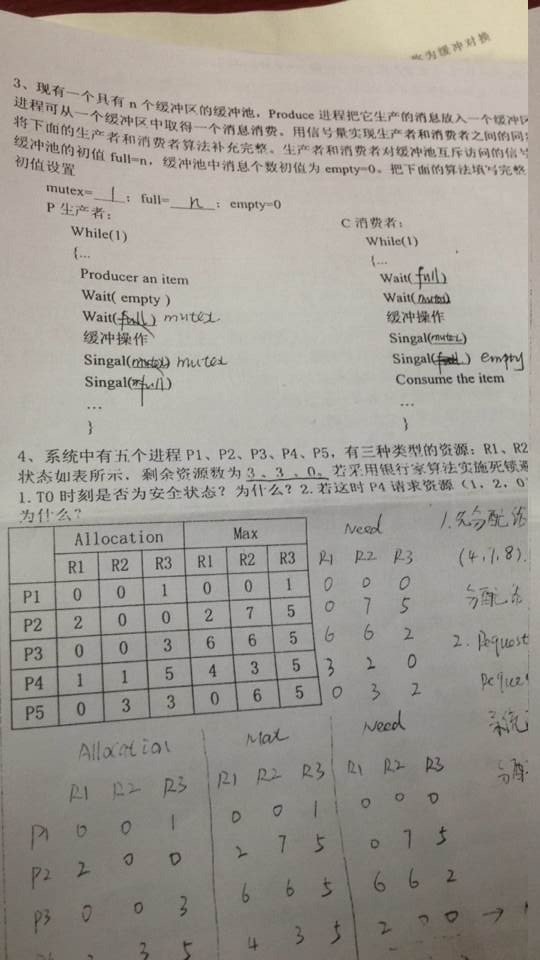 称为缓冲对换
3、现有一个具有 n 个缓冲区的缓冲池，Produce 进程把它生产的消息放入一个缓冲区
进程可从一个缓冲区中取得一个消息消费。用信号量实现生产者和消费者之间的同
将下面的生产者和消费者算法补充完整。生产者和消费者对缓冲池互斥访问的信号
缓冲池的初值 full=n，缓冲池中消息个数初值为 empty=0。把下面的算法填写完整
初值设置
mutex= 1 ；full= n ；empty=0
P 生产者：
While(1)
{…
Producer an item
Wait( empty )
Wait(full) mutex
缓冲操作
Singal(mutex) mutex
Singal(full)
…
}
C 消费者：
While(1)
{…
Wait( full )
Wait(mutex)
缓冲操作
Singal(mutex)
Singal(full) empty
Consume the item
…
}
4、系统中有五个进程 P1、P2、P3、P4、P5，有三种类型的资源：R1、R2
状态如表所示，剩余资源数为 3、3、0。若采用银行家算法实施死锁避
1. T0 时刻是否为安全状态？为什么？2. 若这时 P4 请求资源（1，2，0
为什么？
Allocation Max Need
R1 R2 R3 R1 R2 R3 R1 R2 R3
P1 0 0 1 0 0 1 0 0 0
P2 2 0 0 2 7 5 0 7 5
P3 0 0 3 6 6 5 6 6 2
P4 1 1 5 4 3 5 3 2 0
P5 0 3 3 0 6 5 0 3 2
1.先分配给
(4,7,8).
分配给
2. Request
Reque
系统
分配
Allocation Max Need
R1 R2 R3 R1 R2 R3 R1 R2 R3
P1 0 0 1 0 0 1 0 0 0
P2 2 0 0 2 7 5 0 7 5
P3 0 0 3 6 6 5 6 6 2
3 5 4 3 5 2 0 0 →